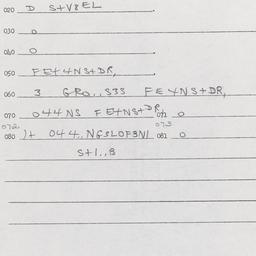 020 D S+V8EL
030 0
060 0
050 FE+4NS+DR,
060 3 GRO.,S33 FE4NS+DR,
070 044NS FE+NS+DR, 072 0
072 073
080 )+ 044,NG3LOF3N1 081 0
S+1.,8